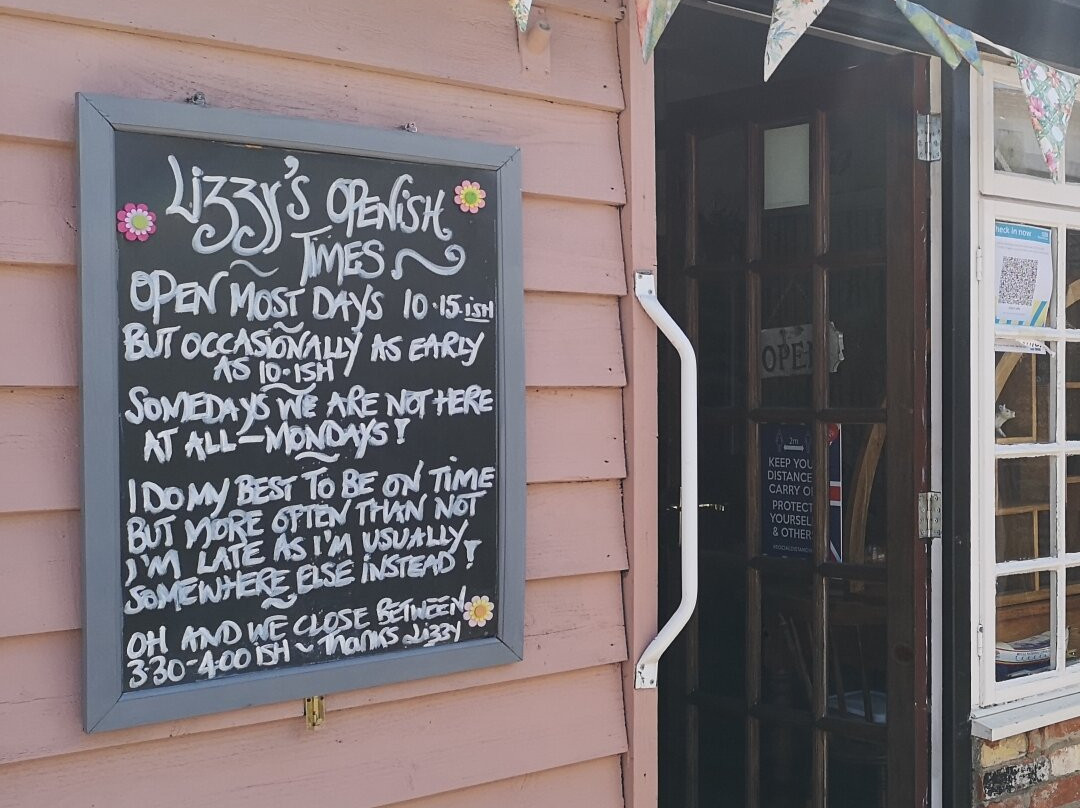 Lizzy's OPENiSH
TIMES
OPEN MOST DAYS 10·15·iSH
BUT OCCASIONALLY AS EARLY
AS 10·ISH
SOMEDAYS WE ARE NOT HERE
AT ALL—MONDAYS!
I DO MY BEST TO BE ON TIME
BUT MORE OFTEN THAN NOT
I'M LATE AS I'M USUALLY
SOMEWHERE ELSE INSTEAD!
OH AND WE CLOSE BETWEEN
3·30-4·00 ISH ~ Thanks Lizzy
OPEN
2m
KEEP YOU
DISTANCE
CARRY O
PROTECT
YOURSEL
& OTHER
heck in now